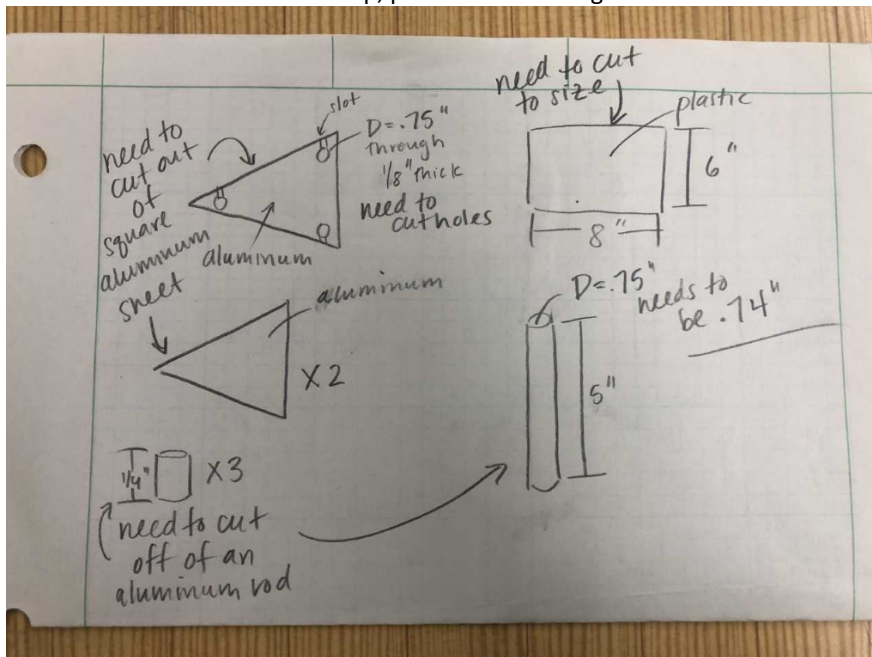 need to
cut out
of
square
aluminum
sheet
slot
D=.75"
through
1/8" thick
need to
cut holes
aluminum
aluminum
X2
1/4"
X3
need to cut
off of an
aluminum rod
need to cut
to size
plastic
6"
8"
D=.75"
needs to
be .74"
5"